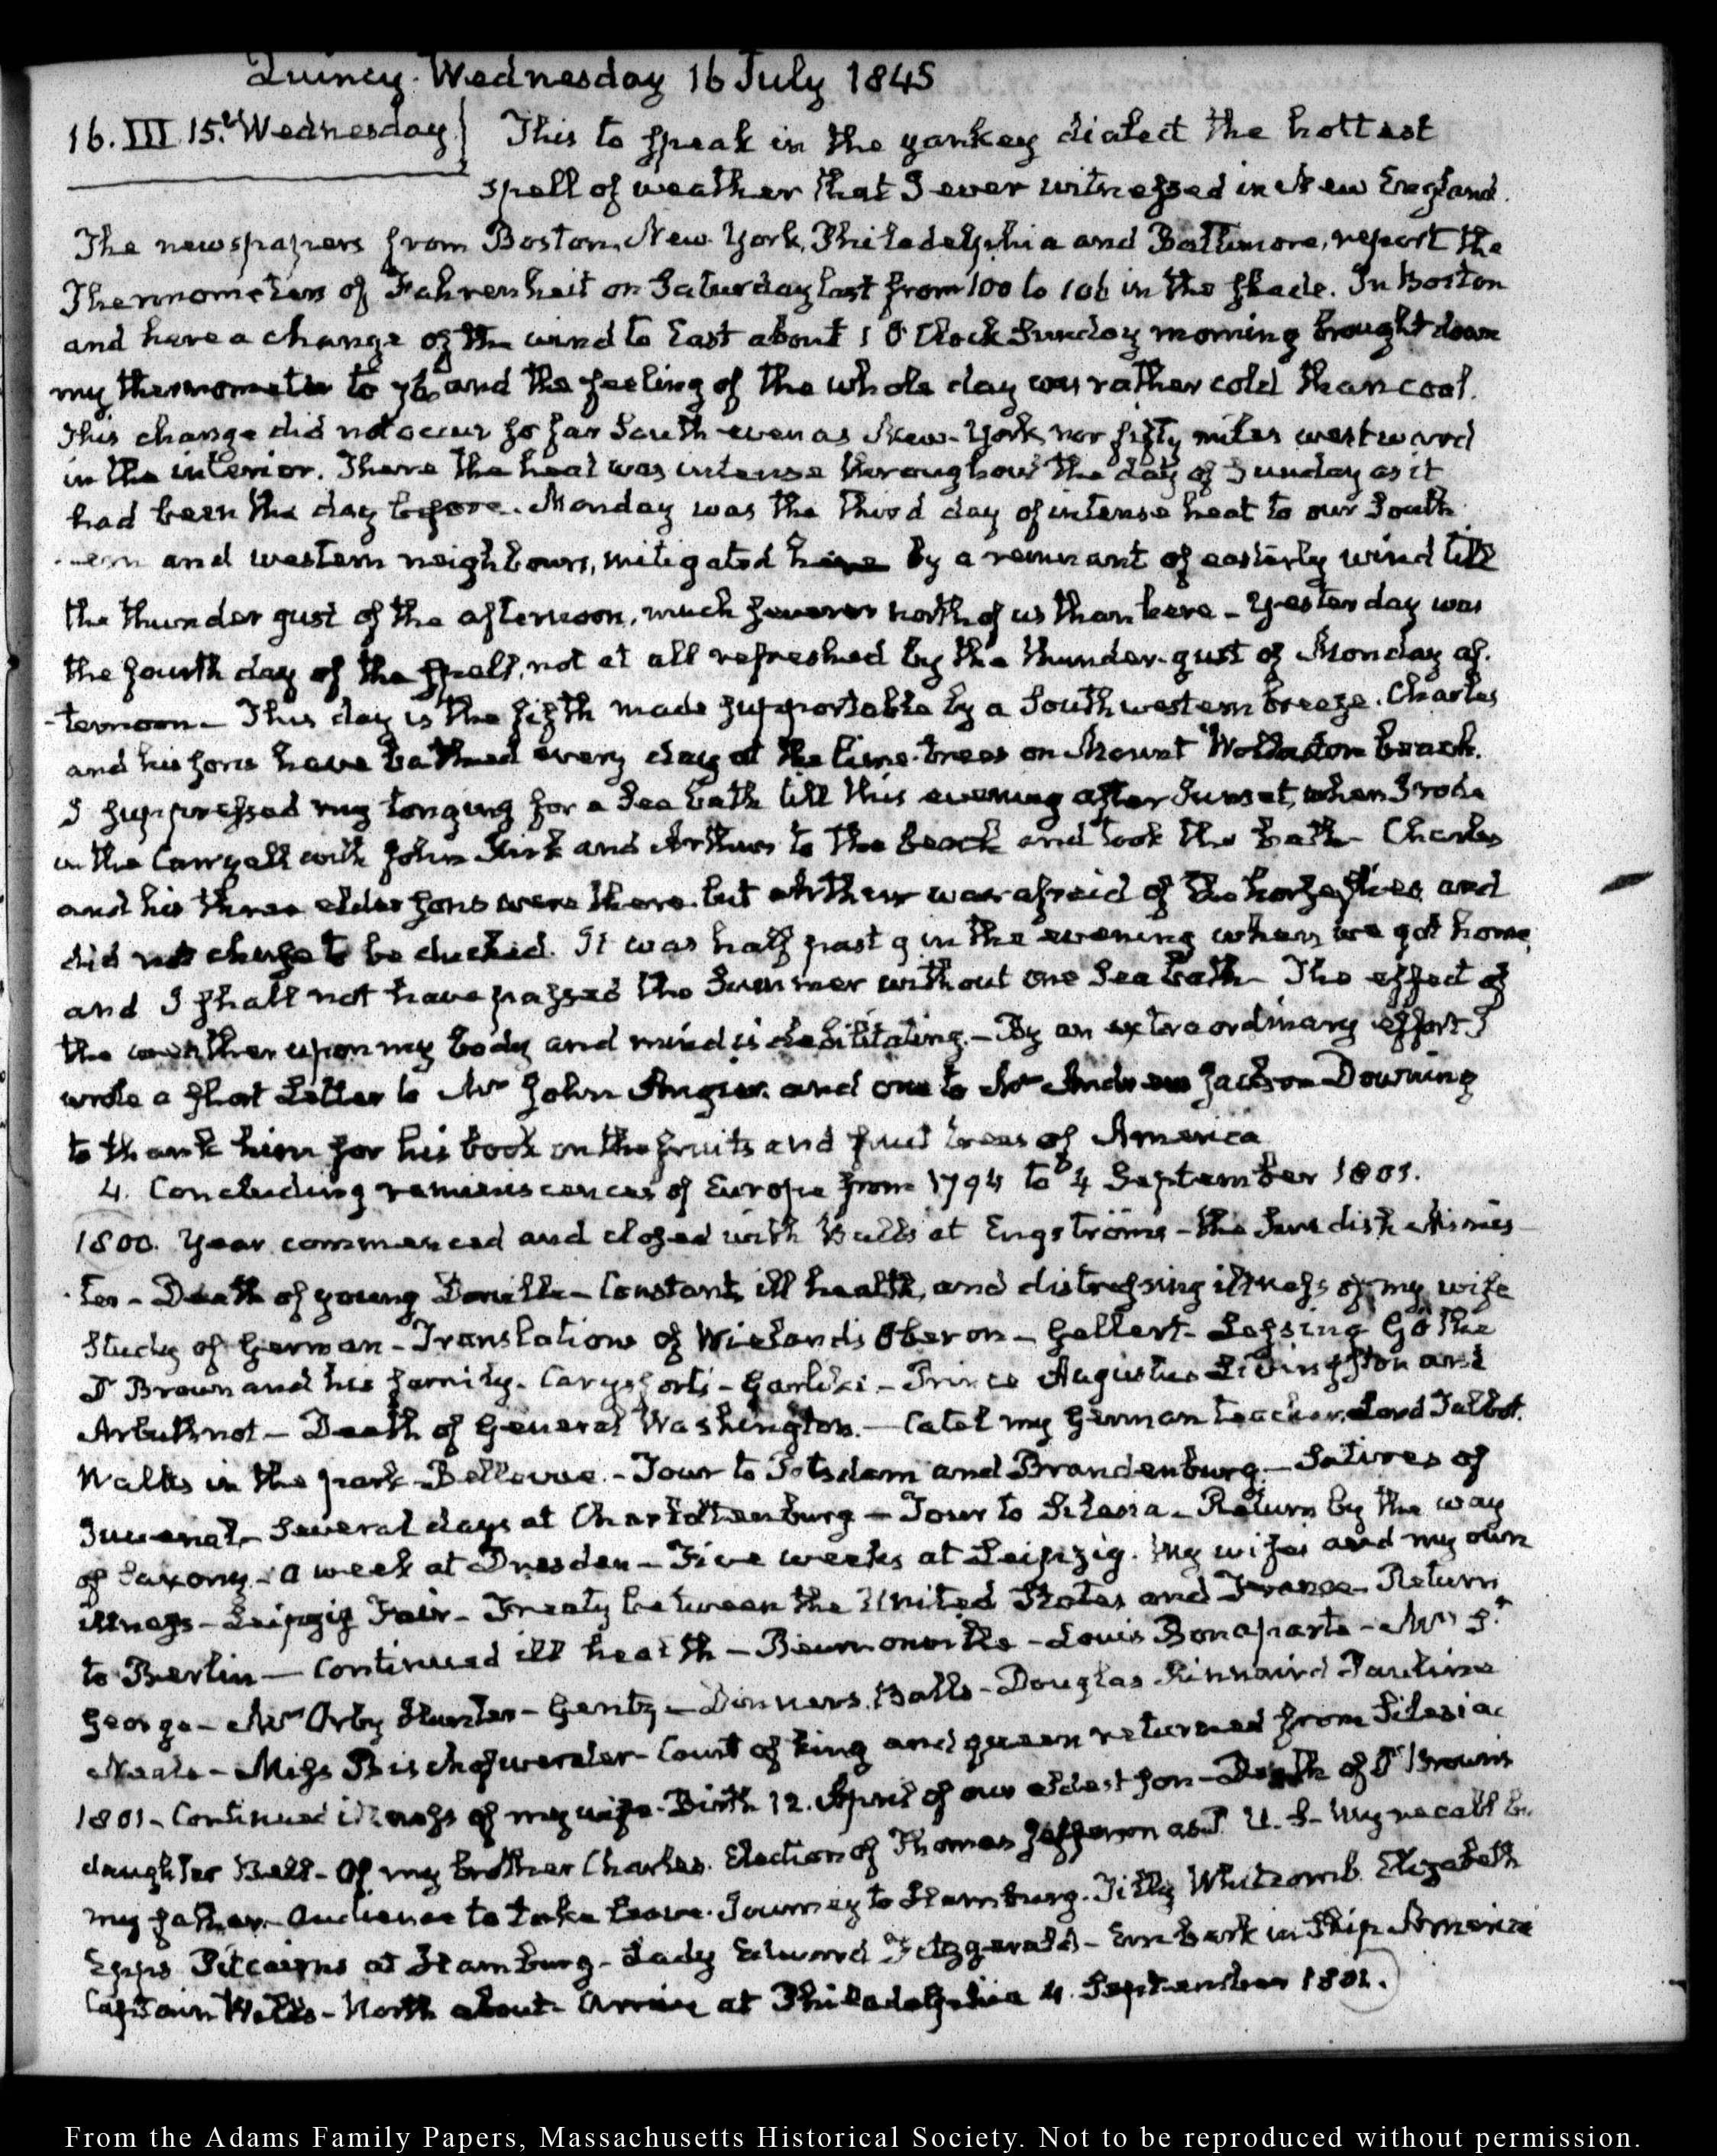 Quincy. Wednesday 16 July 1845
16. III. 15. Wednesday. This to speak in the yankey dialect the hottest
spell of weather that I ever witnessed in New England.
The newspapers from Boston, New-York, Philadelphia and Baltimore, report the
Thermometers of Fahrenheit on Saturday last from 100 to 106 in the shade. In Boston
and here a change of the wind to East about 1 O'Clock Sunday morning brought down
my thermometer to 76 and the feeling of the whole day was rather cold than cool.
This change did not occur so far South even as New-York, nor fifty miles westward
in the interior. There the heat was intense throughout the day of Sunday as it
had been the day before. Monday was the third day of intense heat to our South
-ern and western neighbours, mitigated here by a remnant of easterly wind till
the thunder gust of the afternoon, much severer north of us than here - Yesterday was
the fourth day of the spell, not at all refreshed by the thunder-gust of Monday af-
-ternoon - This day is the fifth made supportable by a Southwestern breeze. Charles
and his sons have bathed every day at the lime-trees on Mount Wollaston beach.
I suppressed my longing for a Sea bath till this evening after Sunset, when I rode
in the Carryall with John Kirk and Arthur to the beach and took the bath - Charles
and his three elder sons were there. but Arthur was afraid of the horse flies, and
did not chuse to be ducked. It was half past 9 in the evening when we got home,
and I shall not have passed the Summer without one Sea bath - The effect of
the weather upon my body and mind is debilitating. - By an extraordinary effort I
wrote a short Letter to Mr John Angier. and one to Mr Andrew Jackson Downing
to thank him for his book on the fruits and fruit trees of America
4. Concluding reminiscences of Europe from 1794 to 4 September 1801.
1800. Year commenced and closed with Balls at Engströms - the Swedish Minis-
-ter - Death of young - Constant, ill health, and distressing illness of my wife
Study of German - Translations of Wieland's Oberon - Gellert - Lessing Göthe
Dr Brown and his family. Carysforts - Garlike - Prince Augustus Livingston and
Arbuthnot - Death of General Washington. - Catel my German teacher. Lord Talbot.
Walks in the park - Bellevue. - Tour to Potsdam and Brandenburg. - Satires of
Juvenal - Several days at Charlottenburg - Tour to Silesia - Return by the way
of Saxony - a week at Dresden - Five weeks at Leipzig. My wife's and my own
illness - Leipzig Fair - Treaty between the United States and France - Return
to Berlin - Continued ill health - Beurnonville - Louis Bonaparte - Mrs St
George - Mrs Orby Hunter - Gentz - Dinners. Balls - Douglas Kinnaird Pauline
Neale - Miss Bischofwerder - Court of king and queen returned from Silesia
1801 - Continued illness of my wife - Birth 12. April of our eldest son - Death of Dr Brown's
daughter Bell - Of my brother Charles. Election of Thomas Jefferson as P. U. S - My recall by
my father - Audience to take leave. Journey to Hamburg. Tilly Whitcomb. Elizabeth
Epps Pitcairns at Hamburg - Lady Edward Fitzgerald - Embark in Ship America
Captain Wills - North about - Arrive at Philadelphia 4. September 1801.
From the Adams Family Papers, Massachusetts Historical Society. Not to be reproduced without permission.